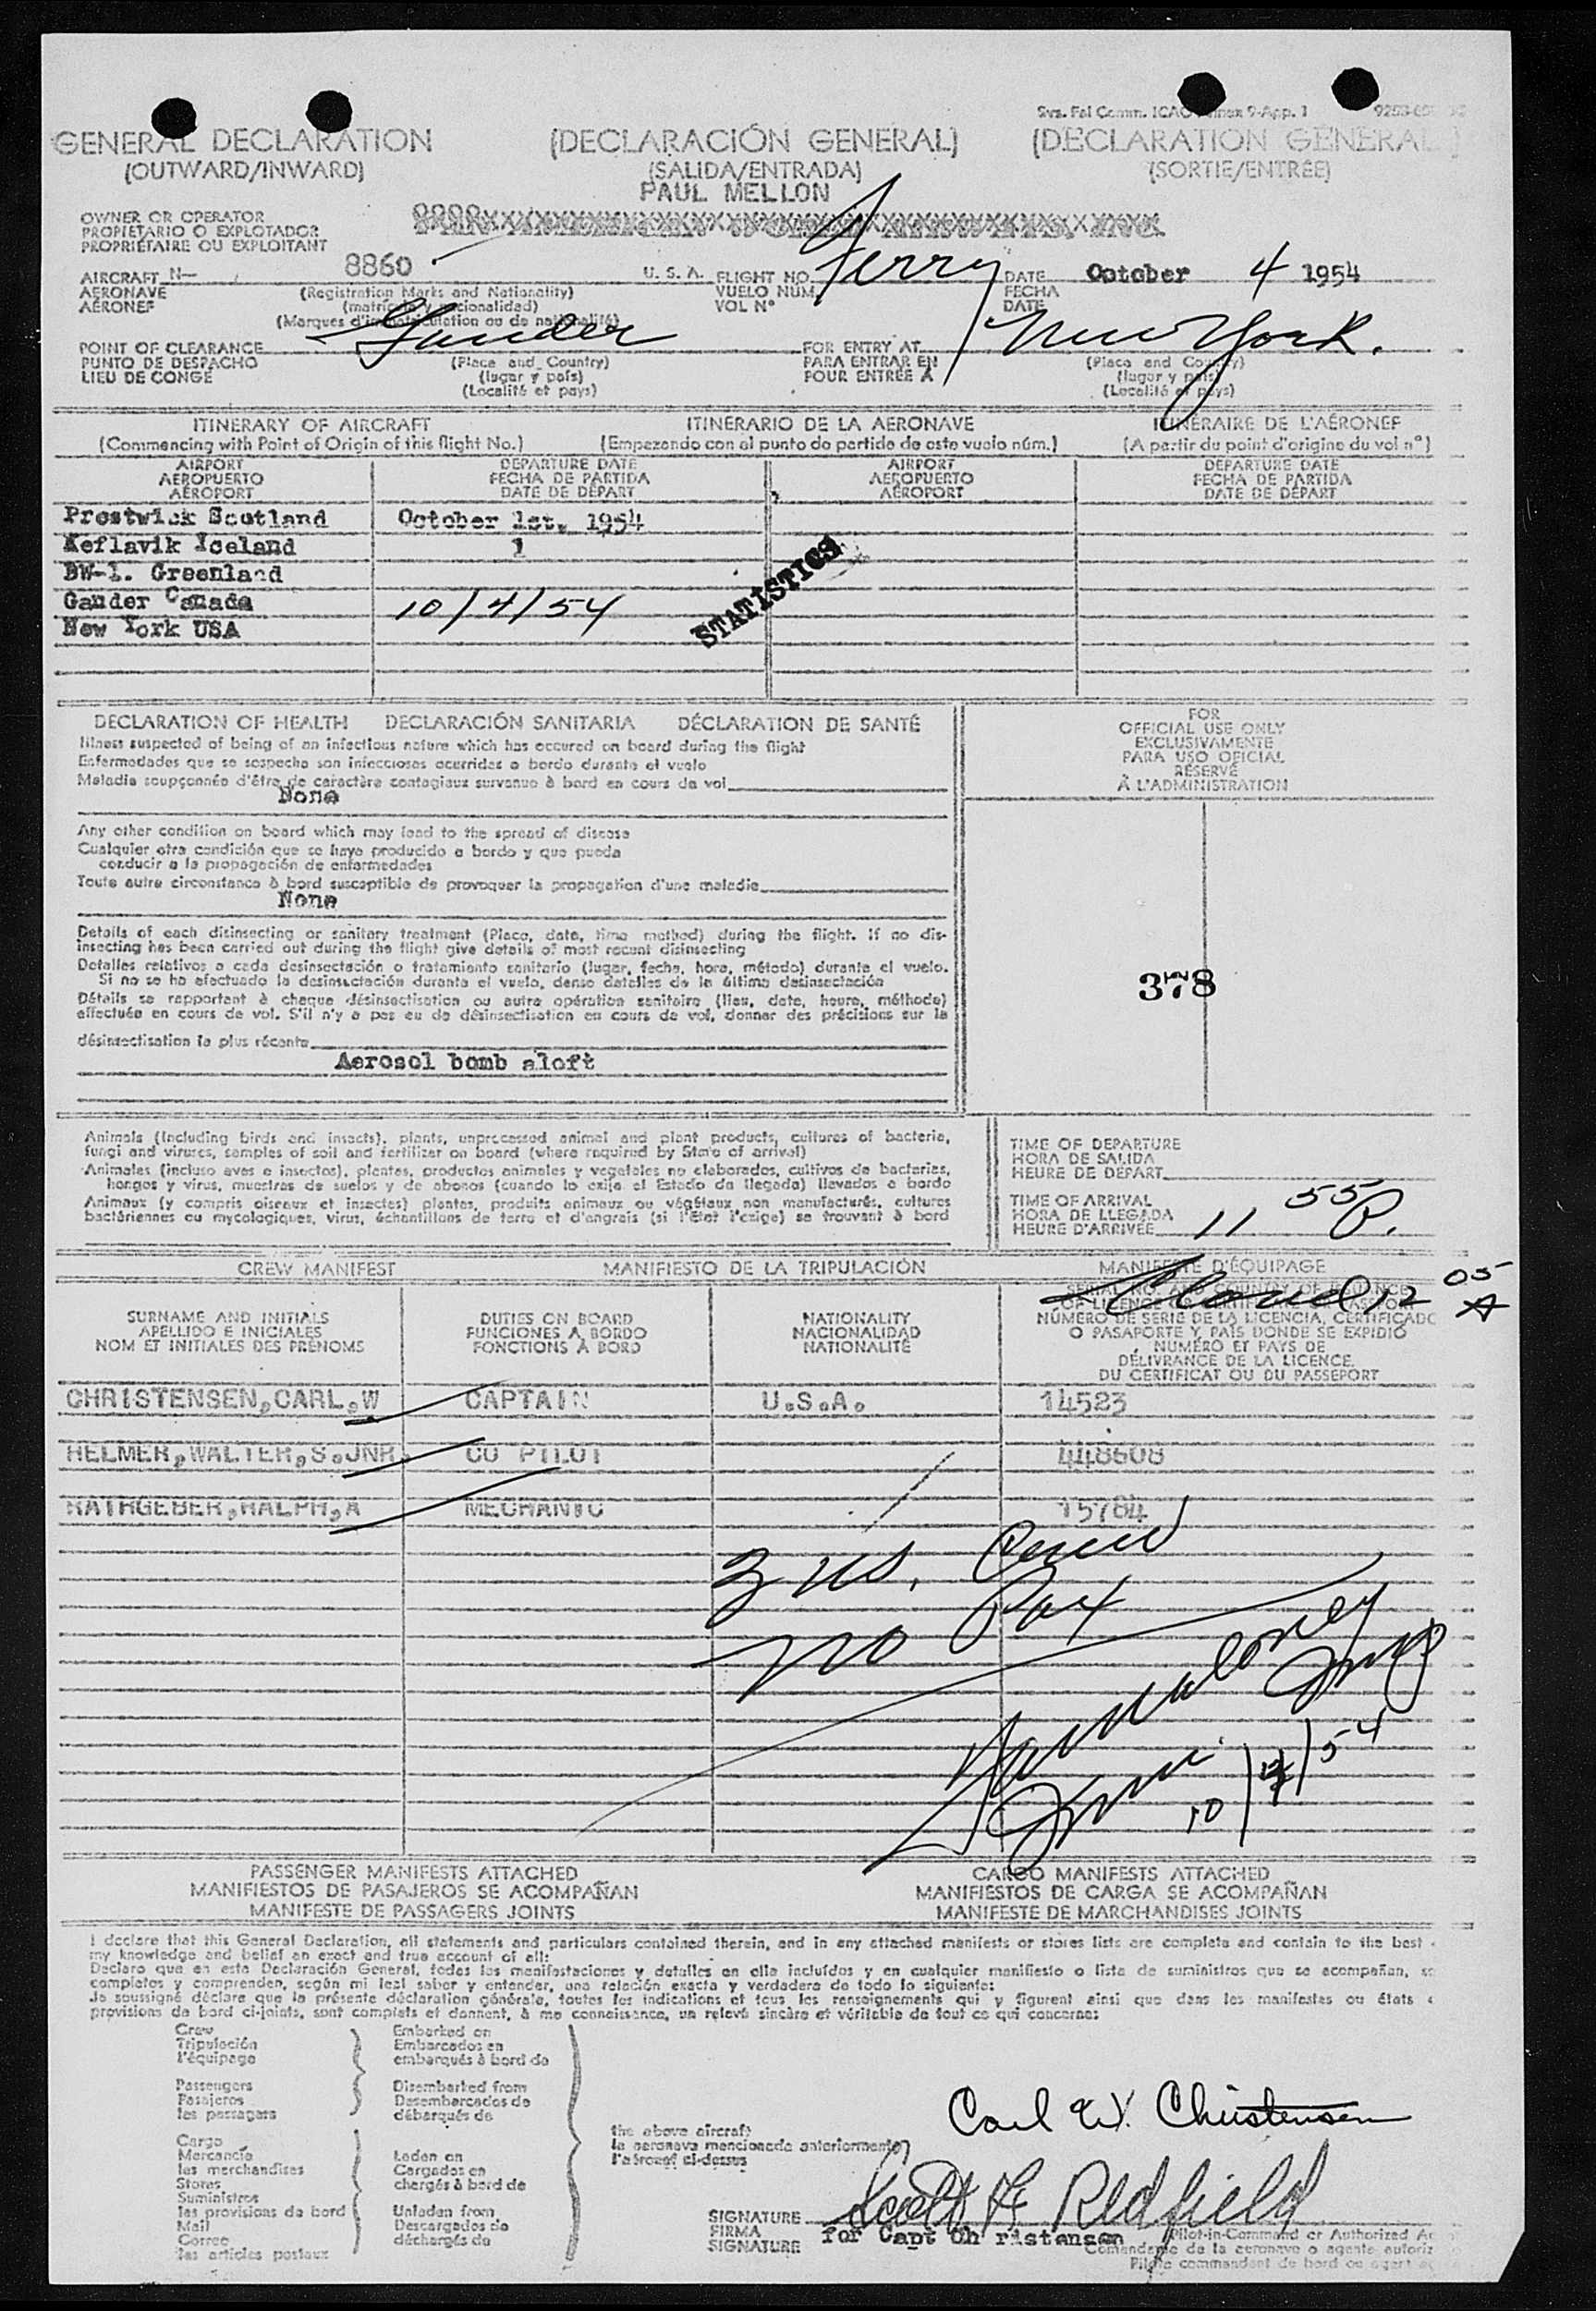 Svs. Fal Comm. ICAO Annex 9-App. 1
GENERAL DECLARATION (DECLARACIÓN GENERAL) (DECLARATION GENERAL
(OUTWARD/INWARD) (SALIDA/ENTRADA) (SORTIE/ENTRÉE)
PAUL MELLON
OWNER OR OPERATOR
PROPIETARIO O EXPLOTADOR
PROPRIÉTAIRE OU EXPLOITANT
AIRCRAFT N— 8860 U. S. A. FLIGHT NO. Ferry DATE October 4 1954
AERONAVE (Registration Marks and Nationality) VUELO NUM. FECHA
AÉRONEF (matrícula y nacionalidad) VOL N° DATE
(Marques d'immatriculation ou de nationalité)
POINT OF CLEARANCE Gander FOR ENTRY AT New York.
PUNTO DE DESPACHO (Place and Country) PARA ENTRAR EN (Place and Country)
LIEU DE CONGÉ (lugar y país) POUR ENTRÉE À (lugar y país)
(Localité et pays) (Localité et pays)
ITINERARY OF AIRCRAFT ITINERARIO DE LA AERONAVE ITINÉRAIRE DE L'AÉRONEF
(Commencing with Point of Origin of this flight No.) (Empezando con el punto de partida de este vuelo núm.) (A partir du point d'origine du vol n°)
AIRPORT DEPARTURE DATE AIRPORT DEPARTURE DATE
AEROPUERTO FECHA DE PARTIDA AEROPUERTO FECHA DE PARTIDA
AÉROPORT DATE DE DÉPART AÉROPORT DATE DE DÉPART
Prestwick Scotland October 1st. 1954
Keflavik Iceland 1
BW-1. Greenland
Gander Canada 10/4/54
New York USA
STATISTICS
DECLARATION OF HEALTH DECLARACIÓN SANITARIA DÉCLARATION DE SANTÉ
Illness suspected of being of an infectious nature which has occured on board during the flight
Enfermedades que se sospecha son infecciosas ocurridas a bordo durante el vuelo
Maladie soupçonnée d'être de caractère contagieux survenue à bord en cours de vol
None
FOR
OFFICIAL USE ONLY
EXCLUSIVAMENTE
PARA USO OFICIAL
RÉSERVÉ
À L'ADMINISTRATION
Any other condition on board which may lead to the spread of disease
Cualquier otra condición que se haya producido a bordo y que pueda
conducir a la propagación de enfermedades
Toute autre circonstance à bord susceptible de provoquer la propagation d'une maladie
None
Details of each disinsecting or sanitary treatment (Place, date, time method) during the flight. If no dis-
insecting has been carried out during the flight give details of most recent disinsecting
Detalles relativos a cada desinsectación o tratamiento sanitario (lugar, fecha, hora, método) durante el vuelo.
Si no se ha efectuado la desinsectación durante el vuelo, dense detalles de la última desinsectación
Détails se rapportant à chaque désinsectisation ou autre opération sanitaire (lieu, date, heure, méthode)
effectuée en cours de vol. S'il n'y a pas eu de désinsectisation en cours de vol, donner des précisions sur la
désinsectisation la plus récente
Aerosol bomb aloft
378
Animals (including birds and insects), plants, unprocessed animal and plant products, cultures of bacteria,
fungi and viruses, samples of soil and fertilizer on board (where required by State of arrival)
Animales (incluso aves e insectos), plantas, productos animales y vegetales no elaborados, cultivos de bacterias,
hongos y virus, muestras de suelos y de abonos (cuando lo exija el Estado de llegada) llevados a bordo
Animaux (y compris oiseaux et insectes) plantes, produits animaux ou végétaux non manufacturés, cultures
bactériennes ou mycologiques, virus, échantillons de terre et d'engrais (si l'État l'exige) se trouvant à bord
TIME OF DEPARTURE
HORA DE SALIDA
HEURE DE DÉPART
TIME OF ARRIVAL
HORA DE LLEGADA
HEURE D'ARRIVÉE 11 55 P.
CREW MANIFEST MANIFIESTO DE LA TRIPULACIÓN MANIFESTE D'ÉQUIPAGE
12 05 A
SURNAME AND INITIALS DUTIES ON BOARD NATIONALITY
APELLIDO E INICIALES FUNCIONES A BORDO NACIONALIDAD
NOM ET INITIALES DES PRÉNOMS FONCTIONS À BORD NATIONALITÉ
NÚMERO DE SERIE DE LA LICENCIA, CERTIFICADO
O PASAPORTE Y PAÍS DONDE SE EXPIDIÓ
NUMÉRO ET PAYS DE
DÉLIVRANCE DE LA LICENCE,
DU CERTIFICAT OU DU PASSEPORT
CHRISTENSEN,CARL,W CAPTAIN U.S.A. 14523
HELMER,WALTER,S.JNR. CO PILOT 448608
RATHGEBER,RALPH,A MECHANIC 15784
3 US. Crew
No Pax
10/4/54
PASSENGER MANIFESTS ATTACHED CARGO MANIFESTS ATTACHED
MANIFIESTOS DE PASAJEROS SE ACOMPAÑAN MANIFIESTOS DE CARGA SE ACOMPAÑAN
MANIFESTE DE PASSAGERS JOINTS MANIFESTE DE MARCHANDISES JOINTS
I declare that this General Declaration, all statements and particulars contained therein, and in any attached manifests or stores lists are complete and contain to the best
my knowledge and belief an exact and true account of all:
Declaro que en esta Declaración General, todas las manifestaciones y detalles en ella incluídos y en cualquier manifiesto o lista de suministros que se acompañan,
completos y comprenden, según mi leal saber y entender, una relación exacta y verdadera de todo lo siguiente:
Je soussigné déclare que la présente déclaration générale, toutes les indications et tous les renseignements qui y figurent ainsi que dans les manifestes ou états
provisions de bord ci-joints, sont complets et donnent, à ma connaissance, un relevé sincère et véritable de tout ce qui concerne:
Crew Embarked on
Tripulación Embarcados en
l'équipage embarqués à bord de
Passengers Disembarked from
Pasajeros Desembarcados de
les passagers débarqués de
Cargo
Mercancía Laden on
les merchandises Cargados en
Stores chargés à bord de
Suministros
les provisions de bord Unladen from
Mail Descargados de
Correo déchargés de
les articles postaux
the above aircraft
la aeronave mencionada anteriormente
l'aéronef ci-dessus
Carl W. Christensen
SIGNATURE Scott F Redfield
FIRMA for Capt Christensen Pilot-in-Command or Authorized
SIGNATURE Comandante de la aeronave o agente
Pilote commandant de bord ou agent